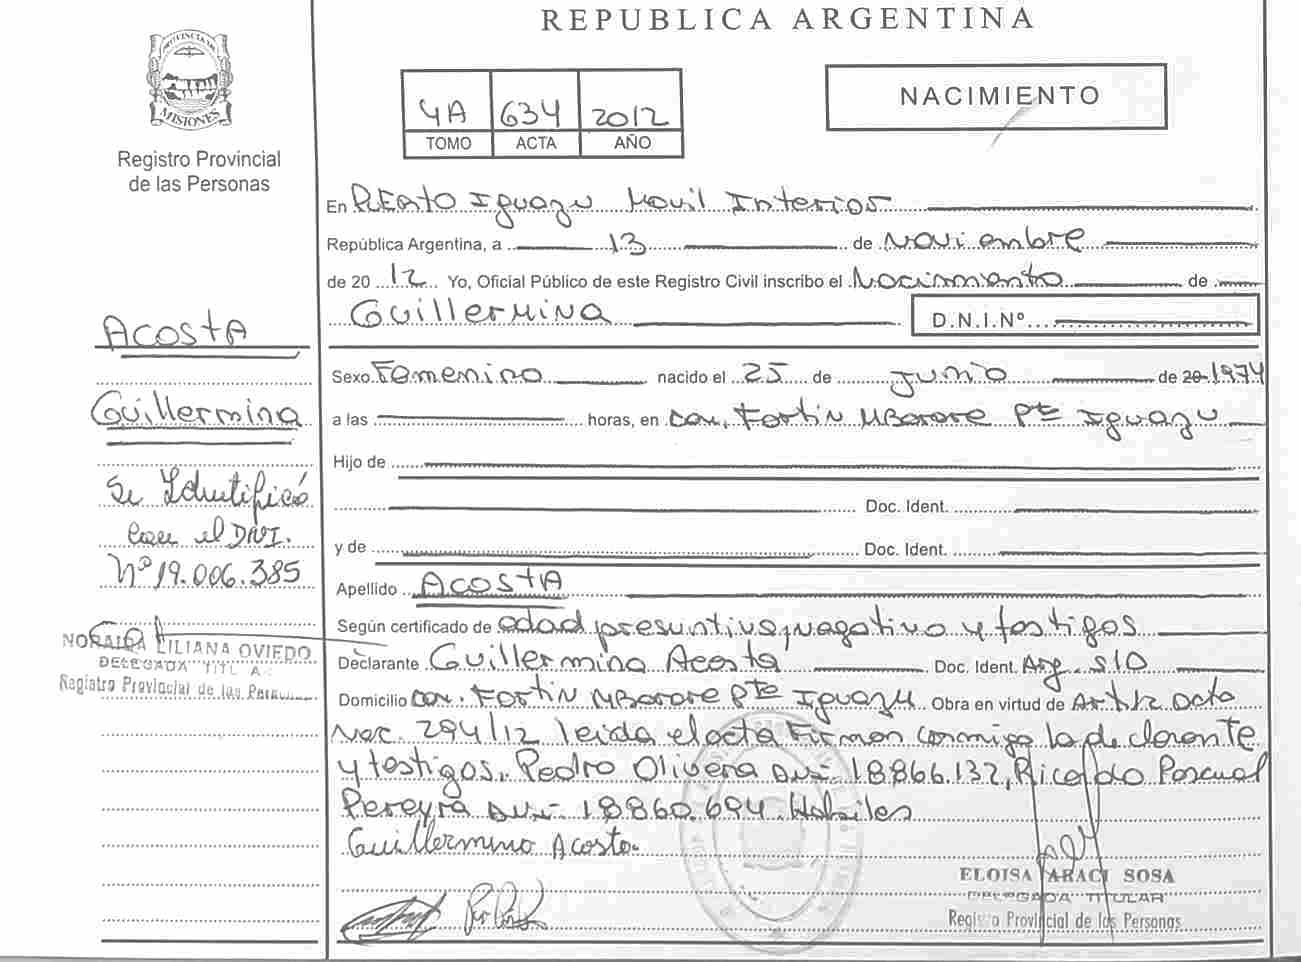 REPUBLICA ARGENTINA
PROVINCIA DE
MISIONES
Registro Provincial
de las Personas
4A 634 2012
TOMO ACTA AÑO
NACIMIENTO
En Puerto Iguazu Movil Interior
República Argentina, a 13 de Noviembre
de 20 12 Yo, Oficial Público de este Registro Civil inscribo el Nacimiento de
Guillermina D.N.I.Nº
Acosta
Guillermina
Se Identificó
con el DNI.
Nº 19.006.385
NORAIDA LILIANA OVIEDO
DELEGADA TITULAR
Registro Provincial de las Personas
Sexo Femenino nacido el 25 de Junio de 20 1974
a las horas, en con. Fortin Mborore Pte Iguazu
Hijo de
Doc. Ident.
y de Doc. Ident.
Apellido Acosta
Según certificado de edad presuntiva, negativo y testigos
Declarante Guillermina Acosta Doc. Ident. Arg. S/D
Domicilio con. Fortin Mborore Pte Iguazu Obra en virtud de Art. 12 Acta
Nac. 294/12 leida el acta firman conmigo la declarante
y testigos. Pedro Olivera DNI- 18.866.132, Ricardo Pascual
Pereyra DNI- 18860.694. Habiles
Guillermina Acosta.
ELOISA ARACI SOSA
DELEGADA TITULAR
Registro Provincial de las Personas